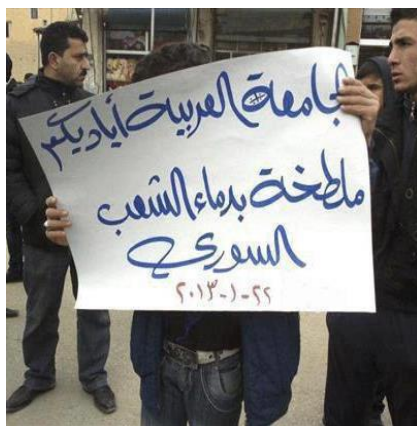 الجامعة العربية أياديكم
ملطخة بدماء الشعب
السوري
٢٢-١-٢٠١٣